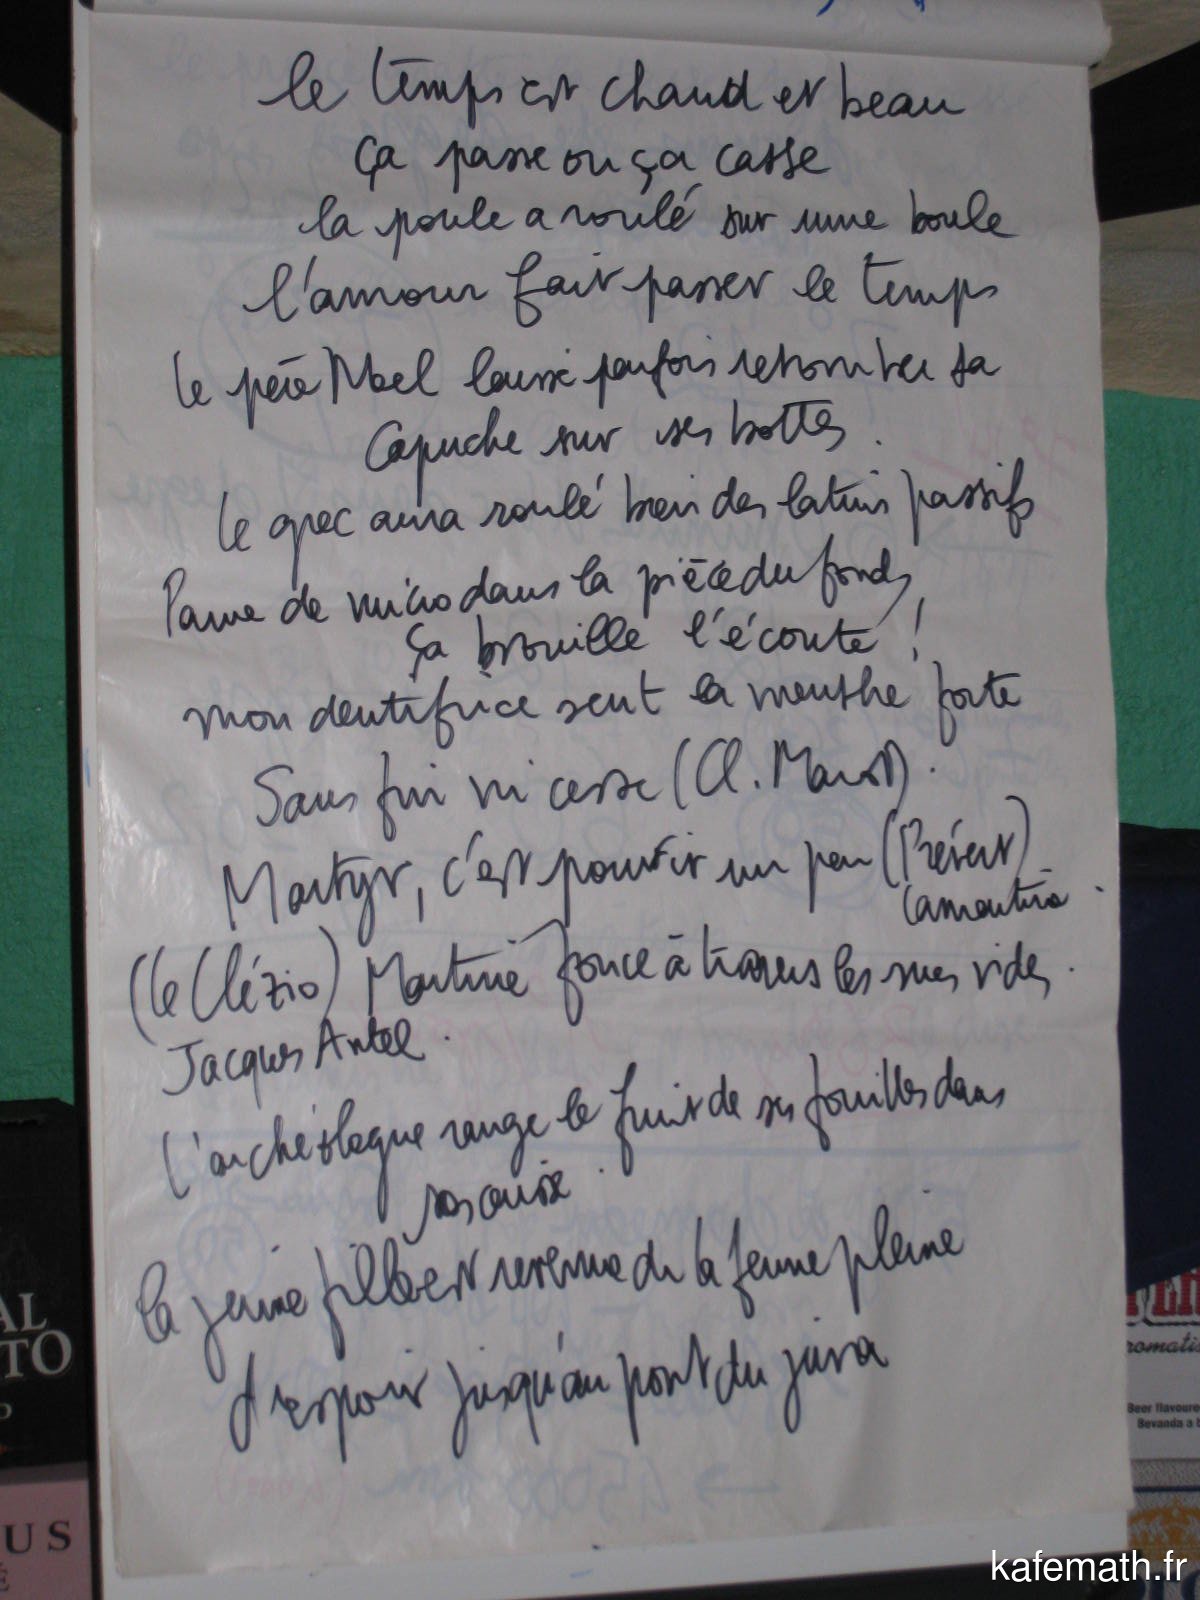 le temps est chaud et beau
ça passe ou ça casse
la poule a roulé sur une boule
l'amour fait passer le temps
le père Noel laisse parfois retomber sa
capuche sur ses bottes.
le grec aura roulé bien des latins passifs
Panne de micro dans la pièce du fond,
ça brouille l'écoute !
mon dentifrice sent la menthe forte
Sans fin ni cesse (Cl. Marot).
Martyr, c'est pourrir un peu (Prévert)
(le Clézio) Martine fonce à travers les rues vides.
Jacques Antel.
l'archéologue range le fruit de ses fouilles dans
sa caisse.
la jeune fille est revenue de la ferme pleine
d'espoir jusqu'au pont du jura
AL
TO
US
É
romatis
Beer flavoure
Bevanda a b
kafemath.fr